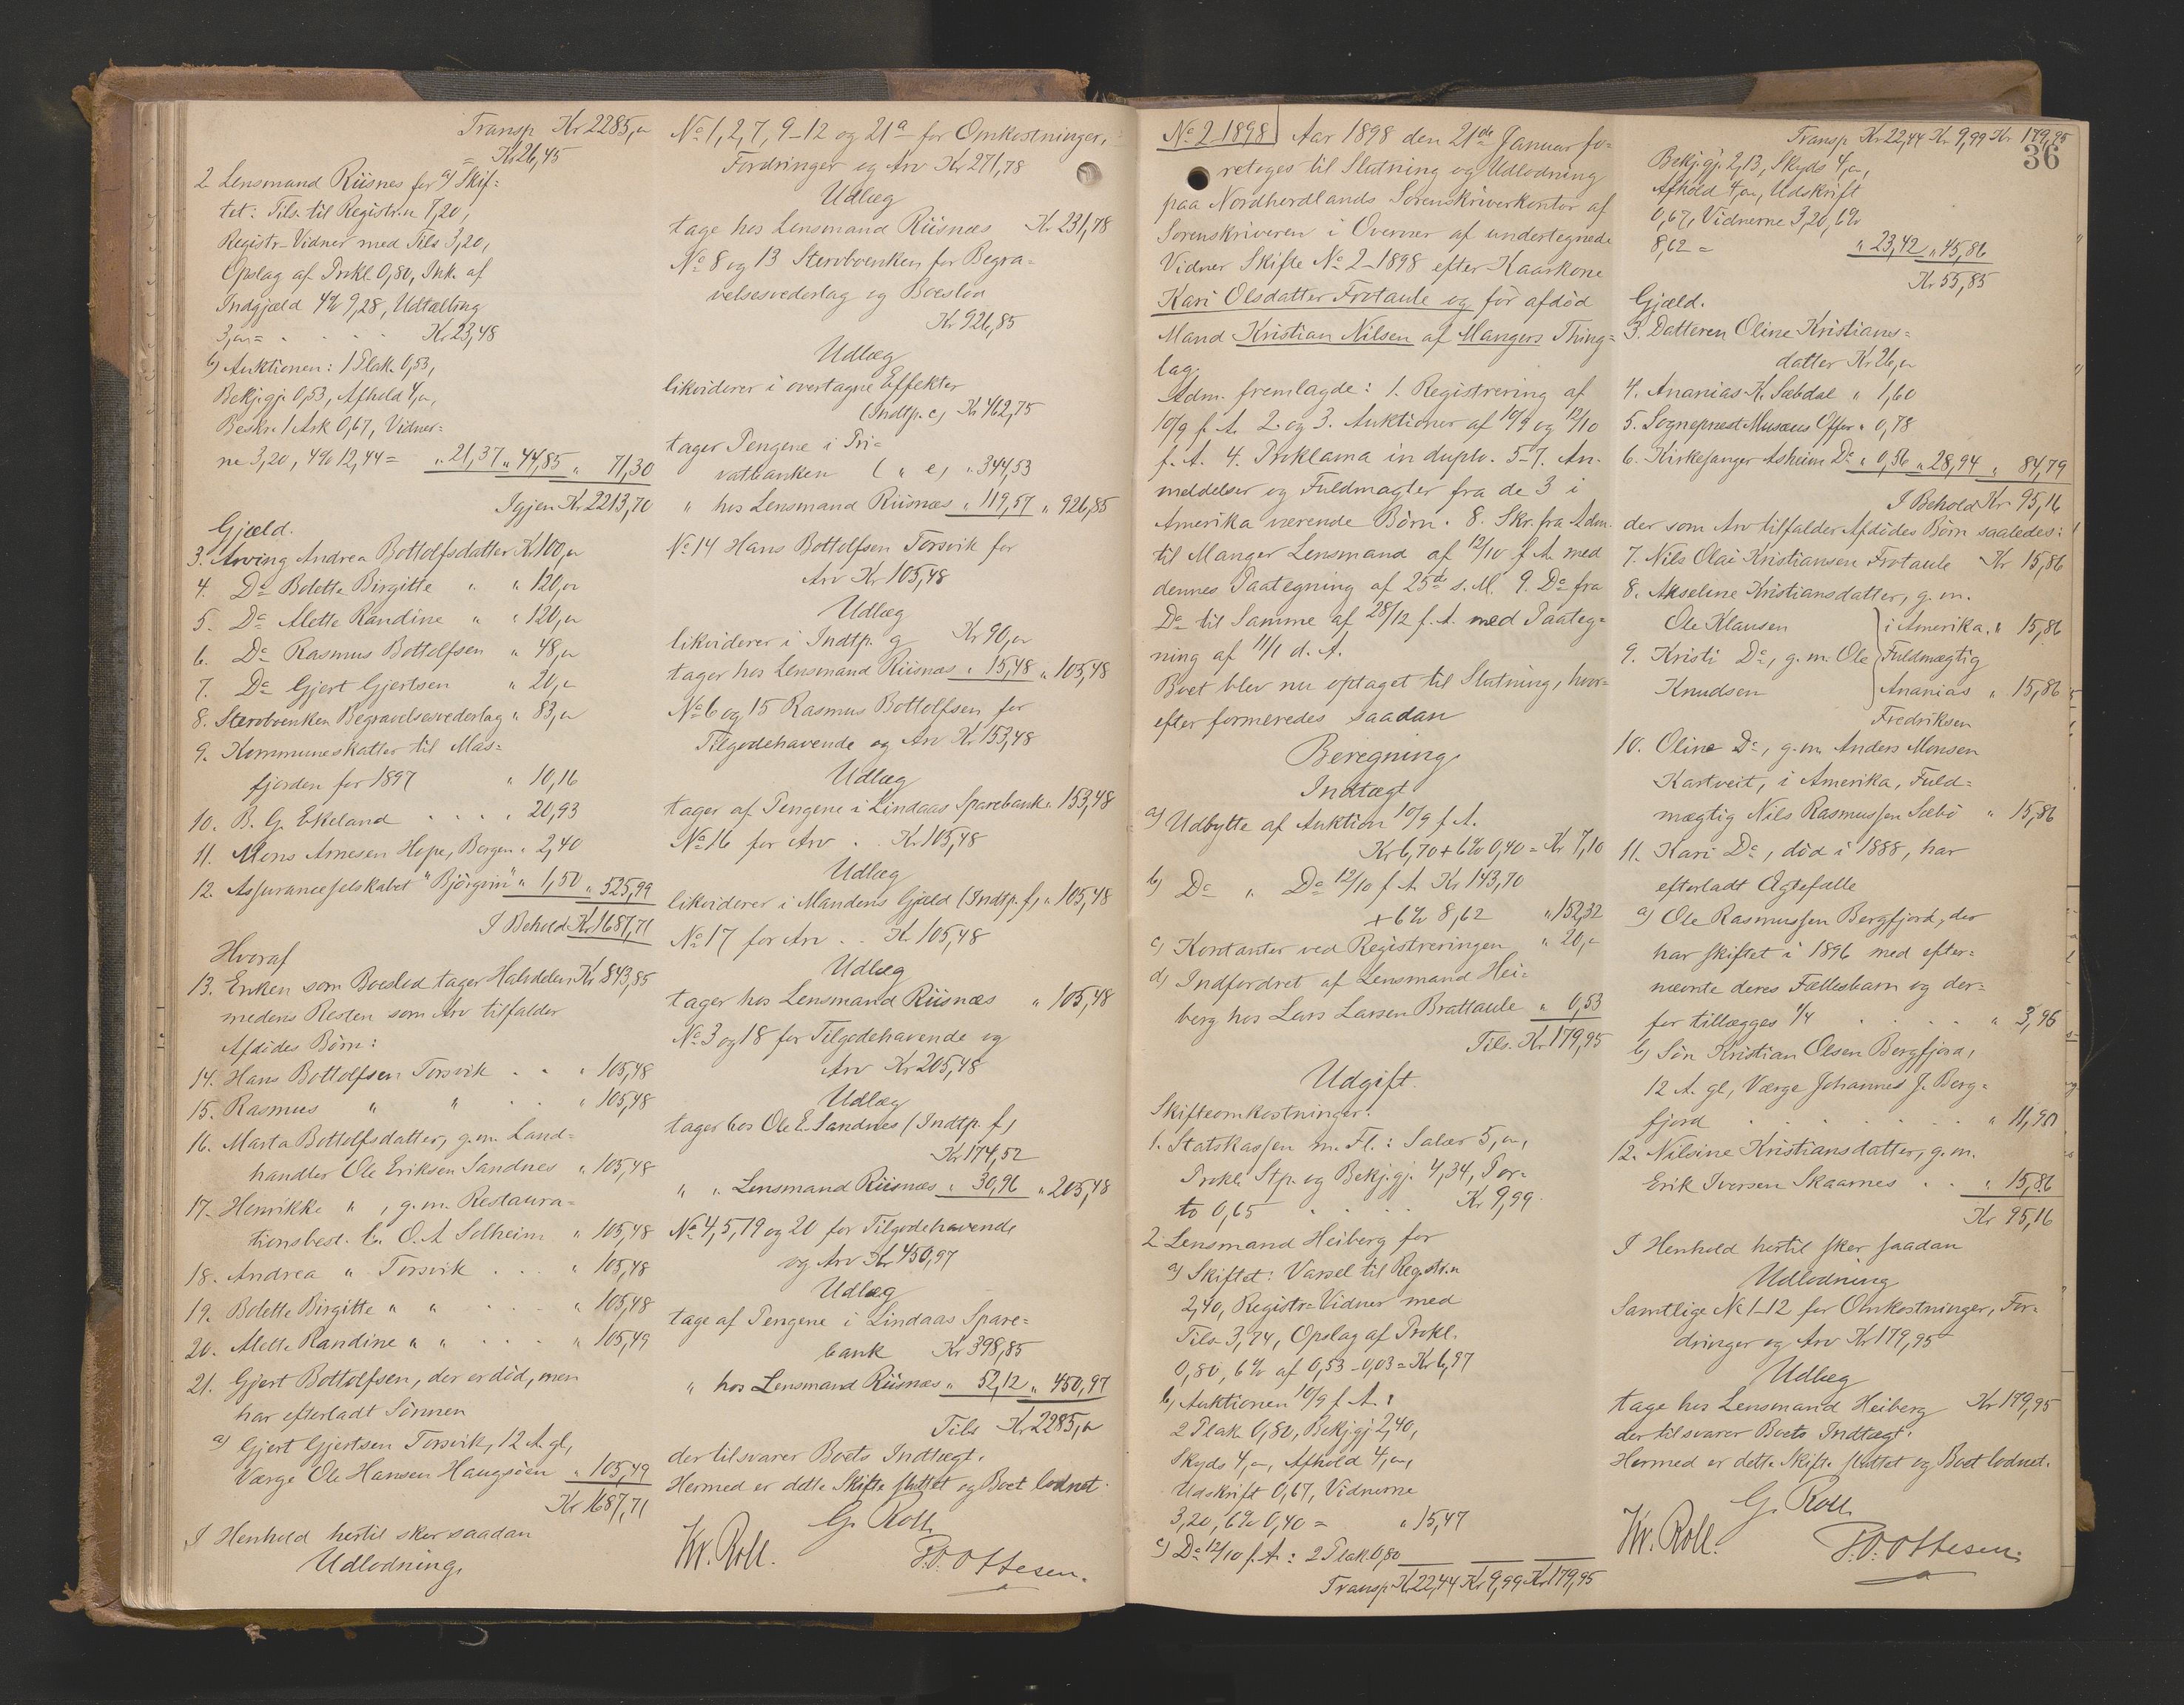 Transp Kr 2285,"
= Kr 26,45
2. Lensmand Riisnes for a) Skif=
tet: Tils. til Registr.n 7,20,
Registr-Vidner med Tils 3,20,
Opslag af Prokl. 0,80, Ink. af
Indgjæld 4% 9,28, Udtælling
3,"= . . . Kr 23,48
b) Auktionen: 1 Plak. 0,53,
Bekj.gj. 0,53, Afhold 4,",
Beskr. 1 Ark 0,67, Vidner=
ne 3,20, 4% 12,44 = " 21,37 " 44,85 " 71,30
Igjen Kr 2213,70
Gjæld.
3. Arving Andrea Bottolfsdatter Kr 100,"
4. Do Bolette Birgitte " " 120,"
5. Do Alette Randine " " 120,"
6. Do Rasmus Bottolfsen " 48,"
7. Do Gjert Gjertsen " 20,"
8. Stervboenken Begravelsesvederlag " 83,"
9. Kommuneskatter til Mas=
fjorden for 1897 " 10,16
10. B. G. Ekeland . . . " 20,93
11. Mons Arnesen Hope, Bergen " 2,40
12. Assuranceselskabet "Björgvin" " 1,50 " 525,99
I Behold Kr 1687,71
Hvoraf
13. Enken som Boeslod tager Halvdelen Kr 843,85
medens Resten som Arv tilfalder
Afdödes Börn:
14. Hans Bottolfsen Torsvik . . " 105,48
15. Rasmus " " . . " 105,48
16. Marta Bottolfsdatter, g.m. Land=
handler Ole Eriksen Sandnes " 105,48
17. Henrikke " , g.m. Restaura=
tionsbest. O. A Solheim " 105,48
18. Andrea " Torsvik . . . " 105,48
19. Bolette Birgitte " " . . . " 105,48
20. Alette Randine " " . . . " 105,49
21. Gjert Bottolfsen, der er död, men
har efterladt Sönnen
a) Gjert Gjertsen Torsvik, 12 A. gl,
Værge Ole Hansen Haugsöen " 105,49
Kr 1687,71
I Henhold hertil sker saadan
Udlodning,
No 1, 2, 7, 9-12 og 21a for Omkostninger,
Fordringer og Arv Kr 271,78
Udlæg
tage hos Lensmand Riisnæs Kr 231,78
No 8 og 13 Stervboenken for Begra=
velsesvederlag og Boeslod
Kr 926,85
Udlæg
likviderer i overtagne Effekter
(Indtp. c) Kr 462,75
tager Pengene i Pri=
vatbanken ( " e) " 344,53
" hos Lensmand Riisnæs " 119,57 " 926,85
No 14 Hans Bottolfsen Torsvik for
Arv Kr 105,48
Udlæg
likviderer i Indtp. g Kr 90,"
tager hos Lensmand Riisnæs " 15,48 " 105,48
No 6 og 15 Rasmus Bottolfsen for
Tilgodehavende og Arv Kr 153,48
Udlæg
tager af Pengene i Lindaas Sparebank " 153,48
No 16 for Arv . Kr 105,48
Udlæg
likviderer i Mandens Gjæld (Indtp. f) " 105,48
No 17 for Arv . . Kr 105,48
Udlæg
tager hos Lensmand Riisnæs " 105,48
No 3 og 18 for Tilgodehavende og
Arv Kr 205,48
Udlæg
tager hos Ole E. Sandnes (Indtp. f)
Kr 174,52
" " Lensmand Riisnæs " 30,96 " 205,48
No 4, 5, 19 og 20 for Tilgodehavende
og Arv Kr 450,97
Udlæg
tage af Pengene i Lindaas Spare=
bank Kr 398,85
" hos Lensmand Riisnæs " 52,12 " 450,97
Tils Kr 2285,"
der tilsvarer Boets Indtægt.
Hermed er dette Skifte sluttet og Boet lodnet.
G. Roll
Kr. Roll. P.O. Ottesen.
No 2-1898 Aar 1898 den 21de Januar fo=
retoges til Slutning og Udlodning
paa Nordhordlands Sorenskriverkontor af
Sorenskriveren i Overvær af undertegnede
Vidner Skifte No 2-1898 efter Kaarkone
Kari Olsdatter Frotaule og för afdöd
Mand Kristian Nilsen af Mangers Thing=
lag.
Adm. fremlagde: 1. Registrering af
10/9 f. A. 2. og 3. Auktioner af 10/9 og 12/10
f. A. 4. Proklama in duplo. 5-7. An=
meldelser og Fuldmagter fra de 3 i
Amerika værende Börn. 8. Skr. fra Adm.
til Manger Lensmand af 12/10 f. A. med
dennes Paategning af 25de s. M. 9. Do fra
Do til Samme af 28/12 f. A. med Paateg=
ning af 11/1 d. A.
Boet blev nu optaget til Slutning, hvor=
efter formeredes saadan
Beregning
Indtægt
a) Udbytte af Auktion 10/9 f. A.
Kr 6,70 + 6% 0,40 = Kr 7,10
b) Do " Do 12/10 f. A. Kr 143,70
+ 6% 8,62 " 152,32
c) Kontanter ved Registreringen " 20,"
d) Indfordret af Lensmand Hei=
berg hos Lars Larsen Brattaule " 0,53
Tils. Kr 179,95
Udgift.
Skifteomkostninger.
1. Statskassen m. Fl.: Salær 5,",
Prokl. Stp. og Bekj.gj. 4,34, Por=
to 0,65 . . . . Kr 9,99.
2. Lensmand Heiberg for
a) Skiftet: Varsel til Registr.n
2,40, Registr-Vidner med
Tils 3,74, Opslag af Prokl.
0,80, 6% af 0,53 - 0,03 = Kr 6,97
b) Auktionen 10/9 f. A.:
2 Plak 0,80, Bekj.gj 2,40,
Skyds 4,", Afhold 4,",
Udskrift 0,67, Vidnerne
3,20, 6% 0,40 = " 15,47
c) Do 12/10 f. A.: 2 Plak. 0,80
Transp Kr 22,44 Kr 9,99 Kr 179,95
Transp Kr 22,44 Kr 9,99 Kr 179,95
36
Bekj.gj. 2,13, Skyds 4,",
Afhold 4,", Udskrift
0,67, Vidnerne 3,20, 6%
8,62 = " 23,42 " 45,86
Kr 55,85
Gjæld.
3. Datteren Oline Kristians=
datter Kr 26,"
4. Ananias K. Sæbdal " 1,60
5. Sogneprest Musæus Offer " 0,78
6. Kirkesanger Asheim Do " 0,56 " 28,94 " 84,79
I Behold Kr 95,16
der som Arv tilfalder Afdödes Börn saaledes:
7. Nils Olai Kristiansen Frotaule Kr 15,86
8. Akseline Kristiansdatter, g. m.
Ole Klausen i Amerika, " 15,86
9. Kristi Do, g. m. Ole Fuldmægtig
Knudsen Ananias " 15,86
Fredriksen
10. Oline Do, g. m. Anders Monsen
Kartveit, i Amerika, Fuld=
mægtig Nils Rasmussen Sæbö " 15,86
11. Kari Do, död i 1888, har
efterladt Ægtefælle
a) Ole Rasmussen Bergfjord, der
har skiftet i 1896 med efter=
nævnte deres Fællesbarn og der=
for tillægges 1/4 . . . . " 3,96
b) Sön Kristian Olsen Bergfjord,
12 A. gl, Værge Johannes J. Berg=
fjord . . . . . . " 11,90
12. Nilsine Kristiansdatter, g. m.
Erik Iversen Skaarnes . . " 15,86
Kr 95,16
I Henhold hertil sker saadan
Udlodning
Samtlige No 1-12 for Omkostninger, For=
dringer og Arv Kr 179,95
Udlæg
tage hos Lensmand Heiberg Kr 179,95
der tilsvarer Boets Indtægt.
Hermed er dette Skifte sluttet og Boet lodnet.
G. Roll
Kr. Roll. P.O. Ottesen.